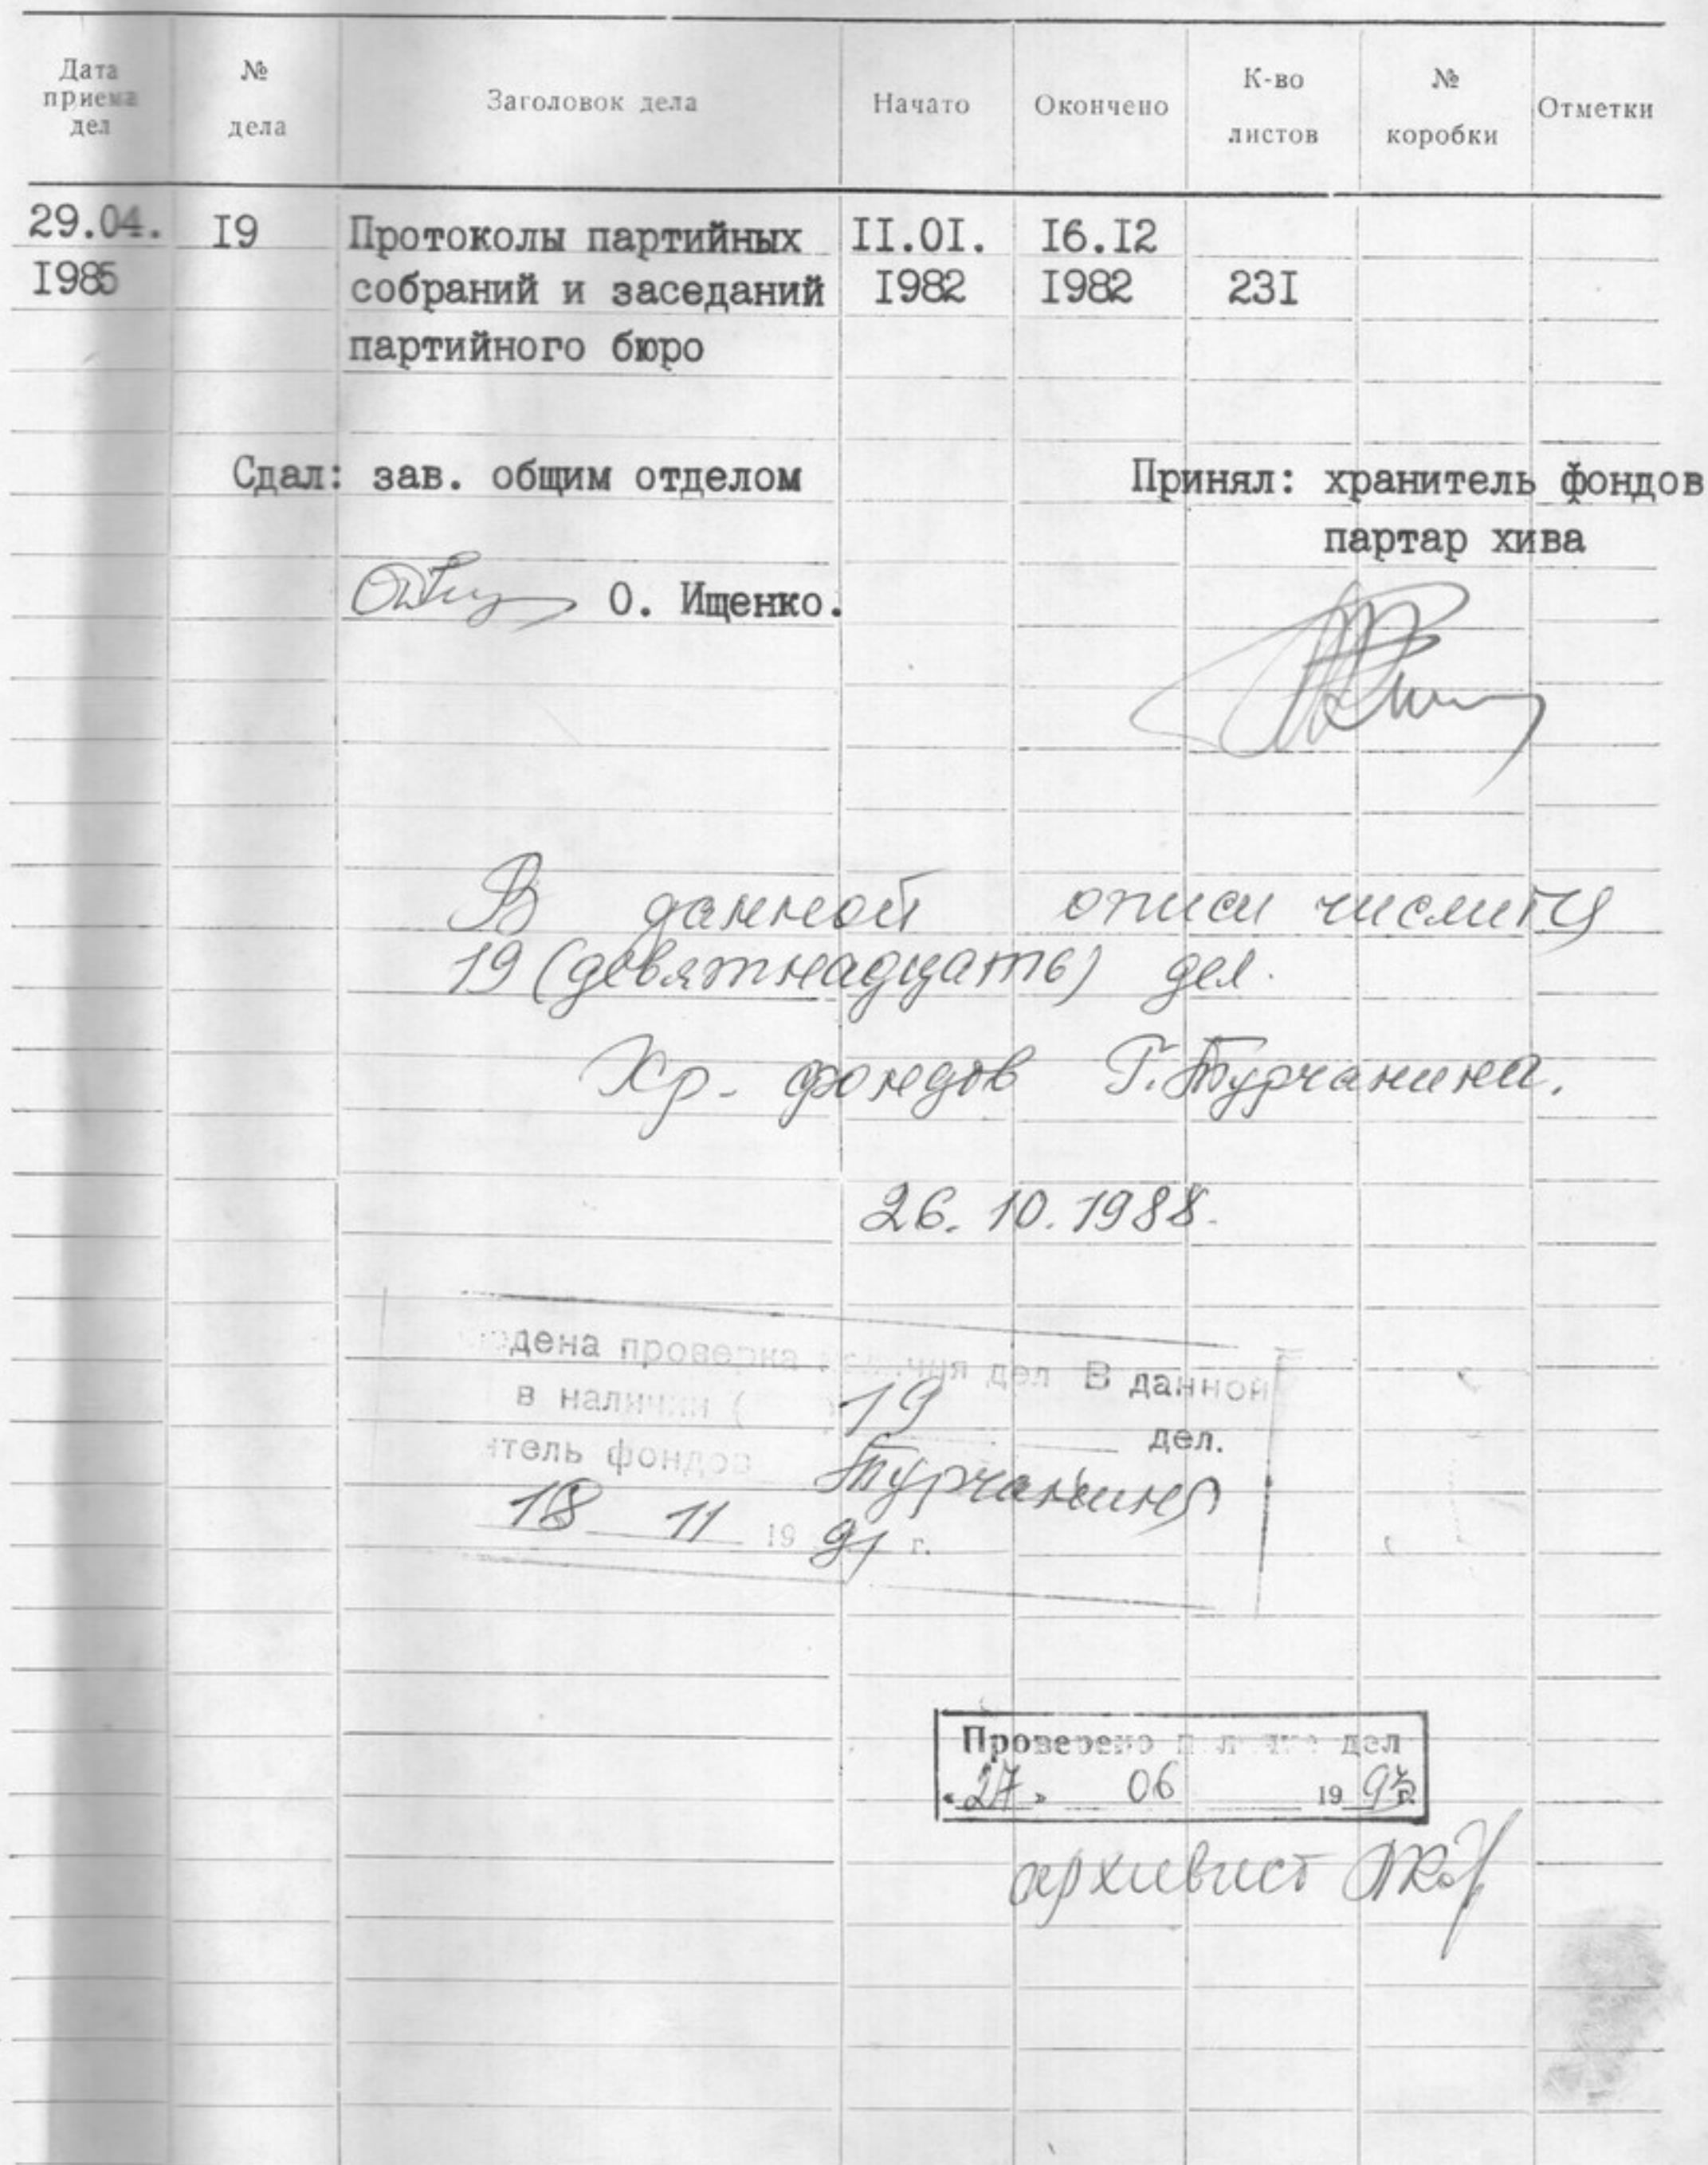 Дата приема дел № дела Заголовок дела Начато Окончено К-во листов № коробки Отметки
29.04. I9 Протоколы партийных II.0I. I6.I2
I985 собраний и заседаний I982 I982 23I
партийного бюро
Сдал: зав. общим отделом Принял: хранитель фондов
партар хива
О. Ищенко.
В данной описи числится
19 (девятнадцать) дел.
Хр. фондов Г. Турчанина.
26. 10. 1988.
дена проверка наличия дел В данной
в наличии ( ) 19 дел.
итель фондов Турчанина
18 11 19 91 г.
Проверено наличие дел
«27» 06 19 93 г.
архивист